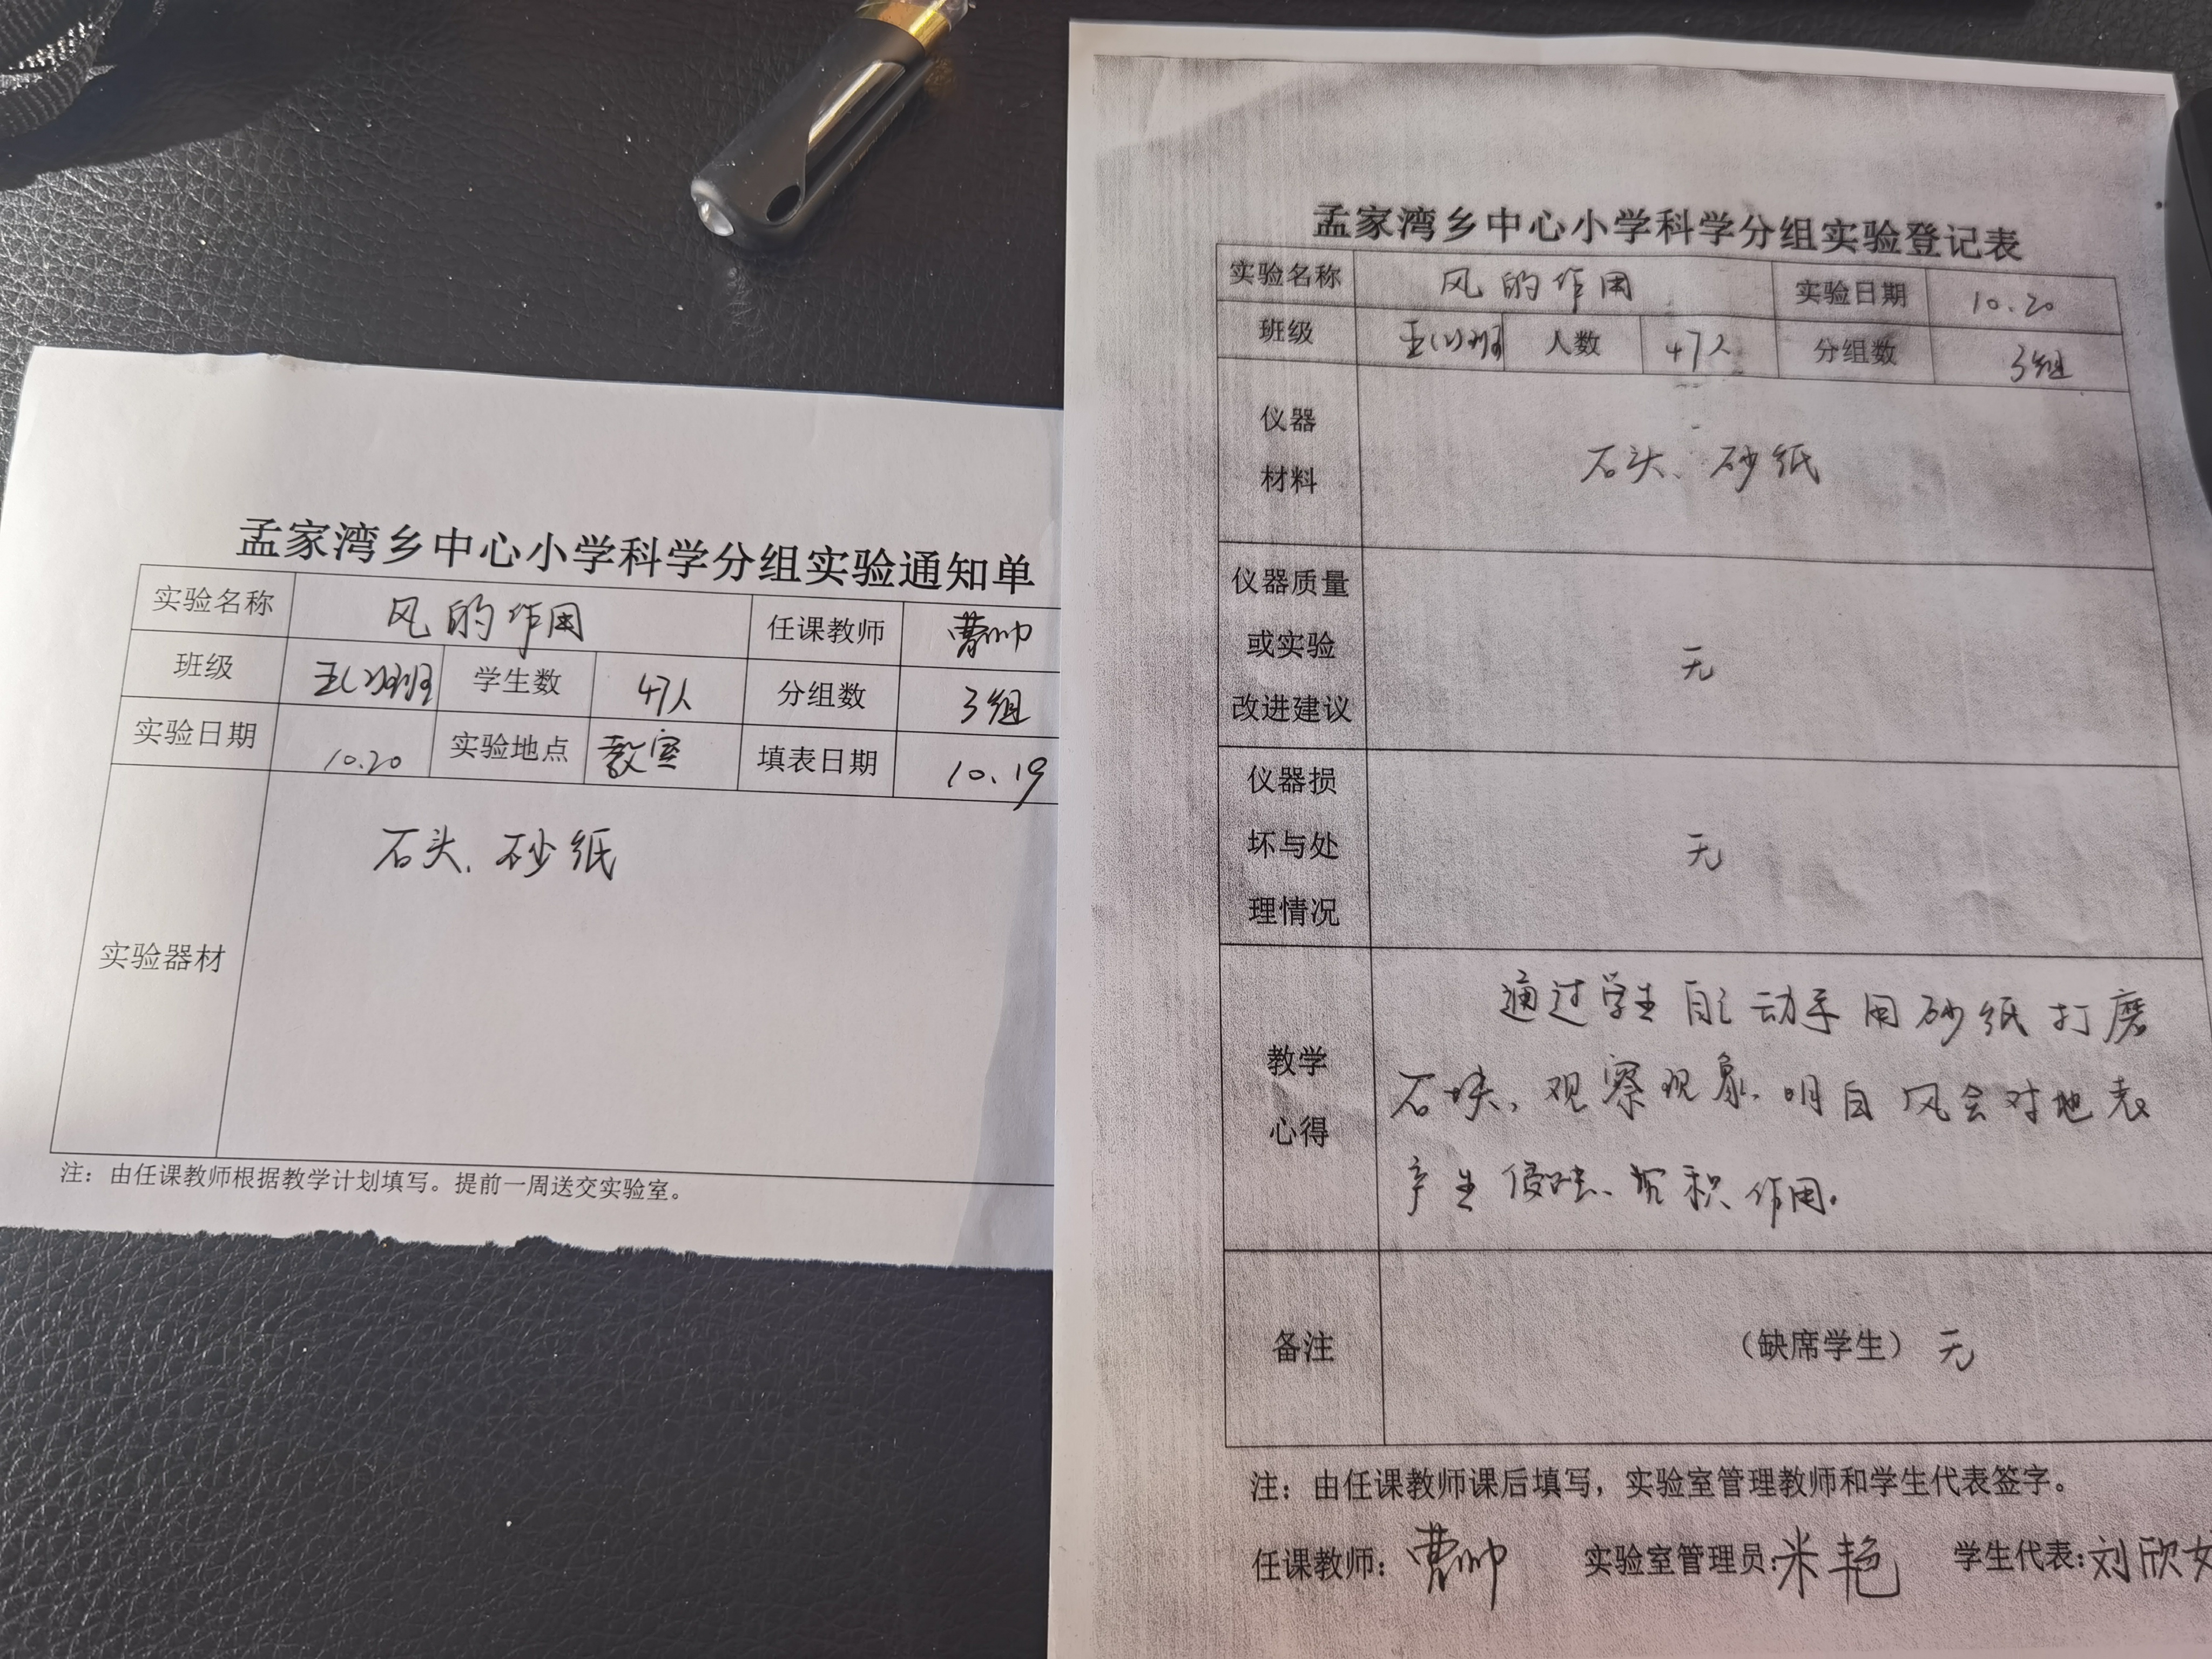 孟家湾乡中心小学科学分组实验通知单
实验名称 风的作用 任课教师 曹帅
班级 五(2)班 学生数 47人 分组数 3组
实验日期 10.20 实验地点 教室 填表日期 10.19
实验器材 石头、砂纸
注：由任课教师根据教学计划填写。提前一周送交实验室。
孟家湾乡中心小学科学分组实验登记表
实验名称 风的作用 实验日期 10.20
班级 五(2)班 人数 47人 分组数 3组
仪器
材料
石头、砂纸
仪器质量
或实验
改进建议
无
仪器损
坏与处
理情况
无
教学
心得
通过学生自己动手用砂纸打磨
石块、观察现象.明白风会对地表
产生侵蚀、沉积作用.
备注 （缺席学生） 无
注：由任课教师课后填写，实验室管理教师和学生代表签字。
任课教师：曹帅 实验室管理员:米艳 学生代表:刘欣